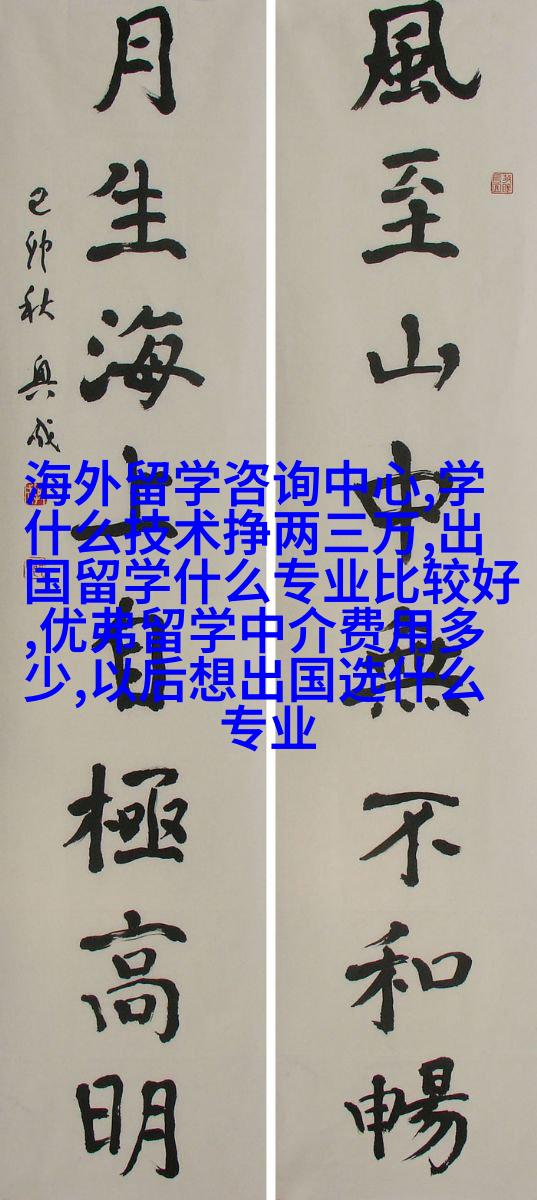 風至山中無不和暢
月生海上自極高明
己卯秋
海外留学咨询中心,学
什么技术挣两三万,出
国留学什么专业比较好
,优弗留学中介费用多
少,以后想出国选什么
专业